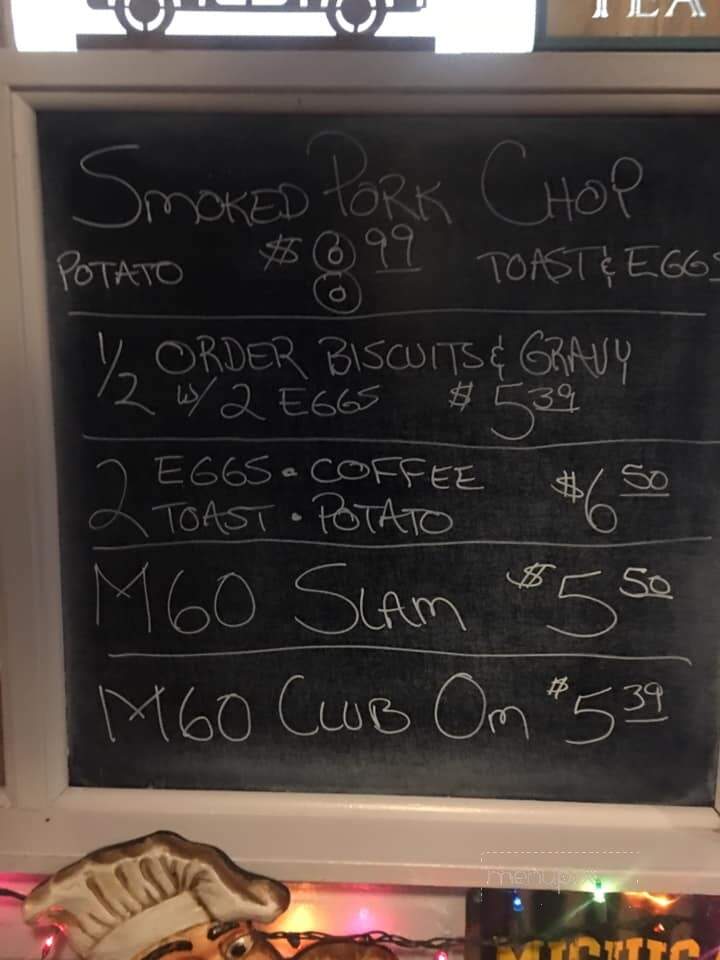 TEA
SMOKED PORK CHOP
POTATO $8.99 TOAST & EGGS
1/2 ORDER BISCUITS & GRAVY
w/ 2 EGGS $5.39
2 EGGS • COFFEE
TOAST • POTATO $6.50
M60 SLAM $5.50
M60 CLUB OM $5.39
menupix